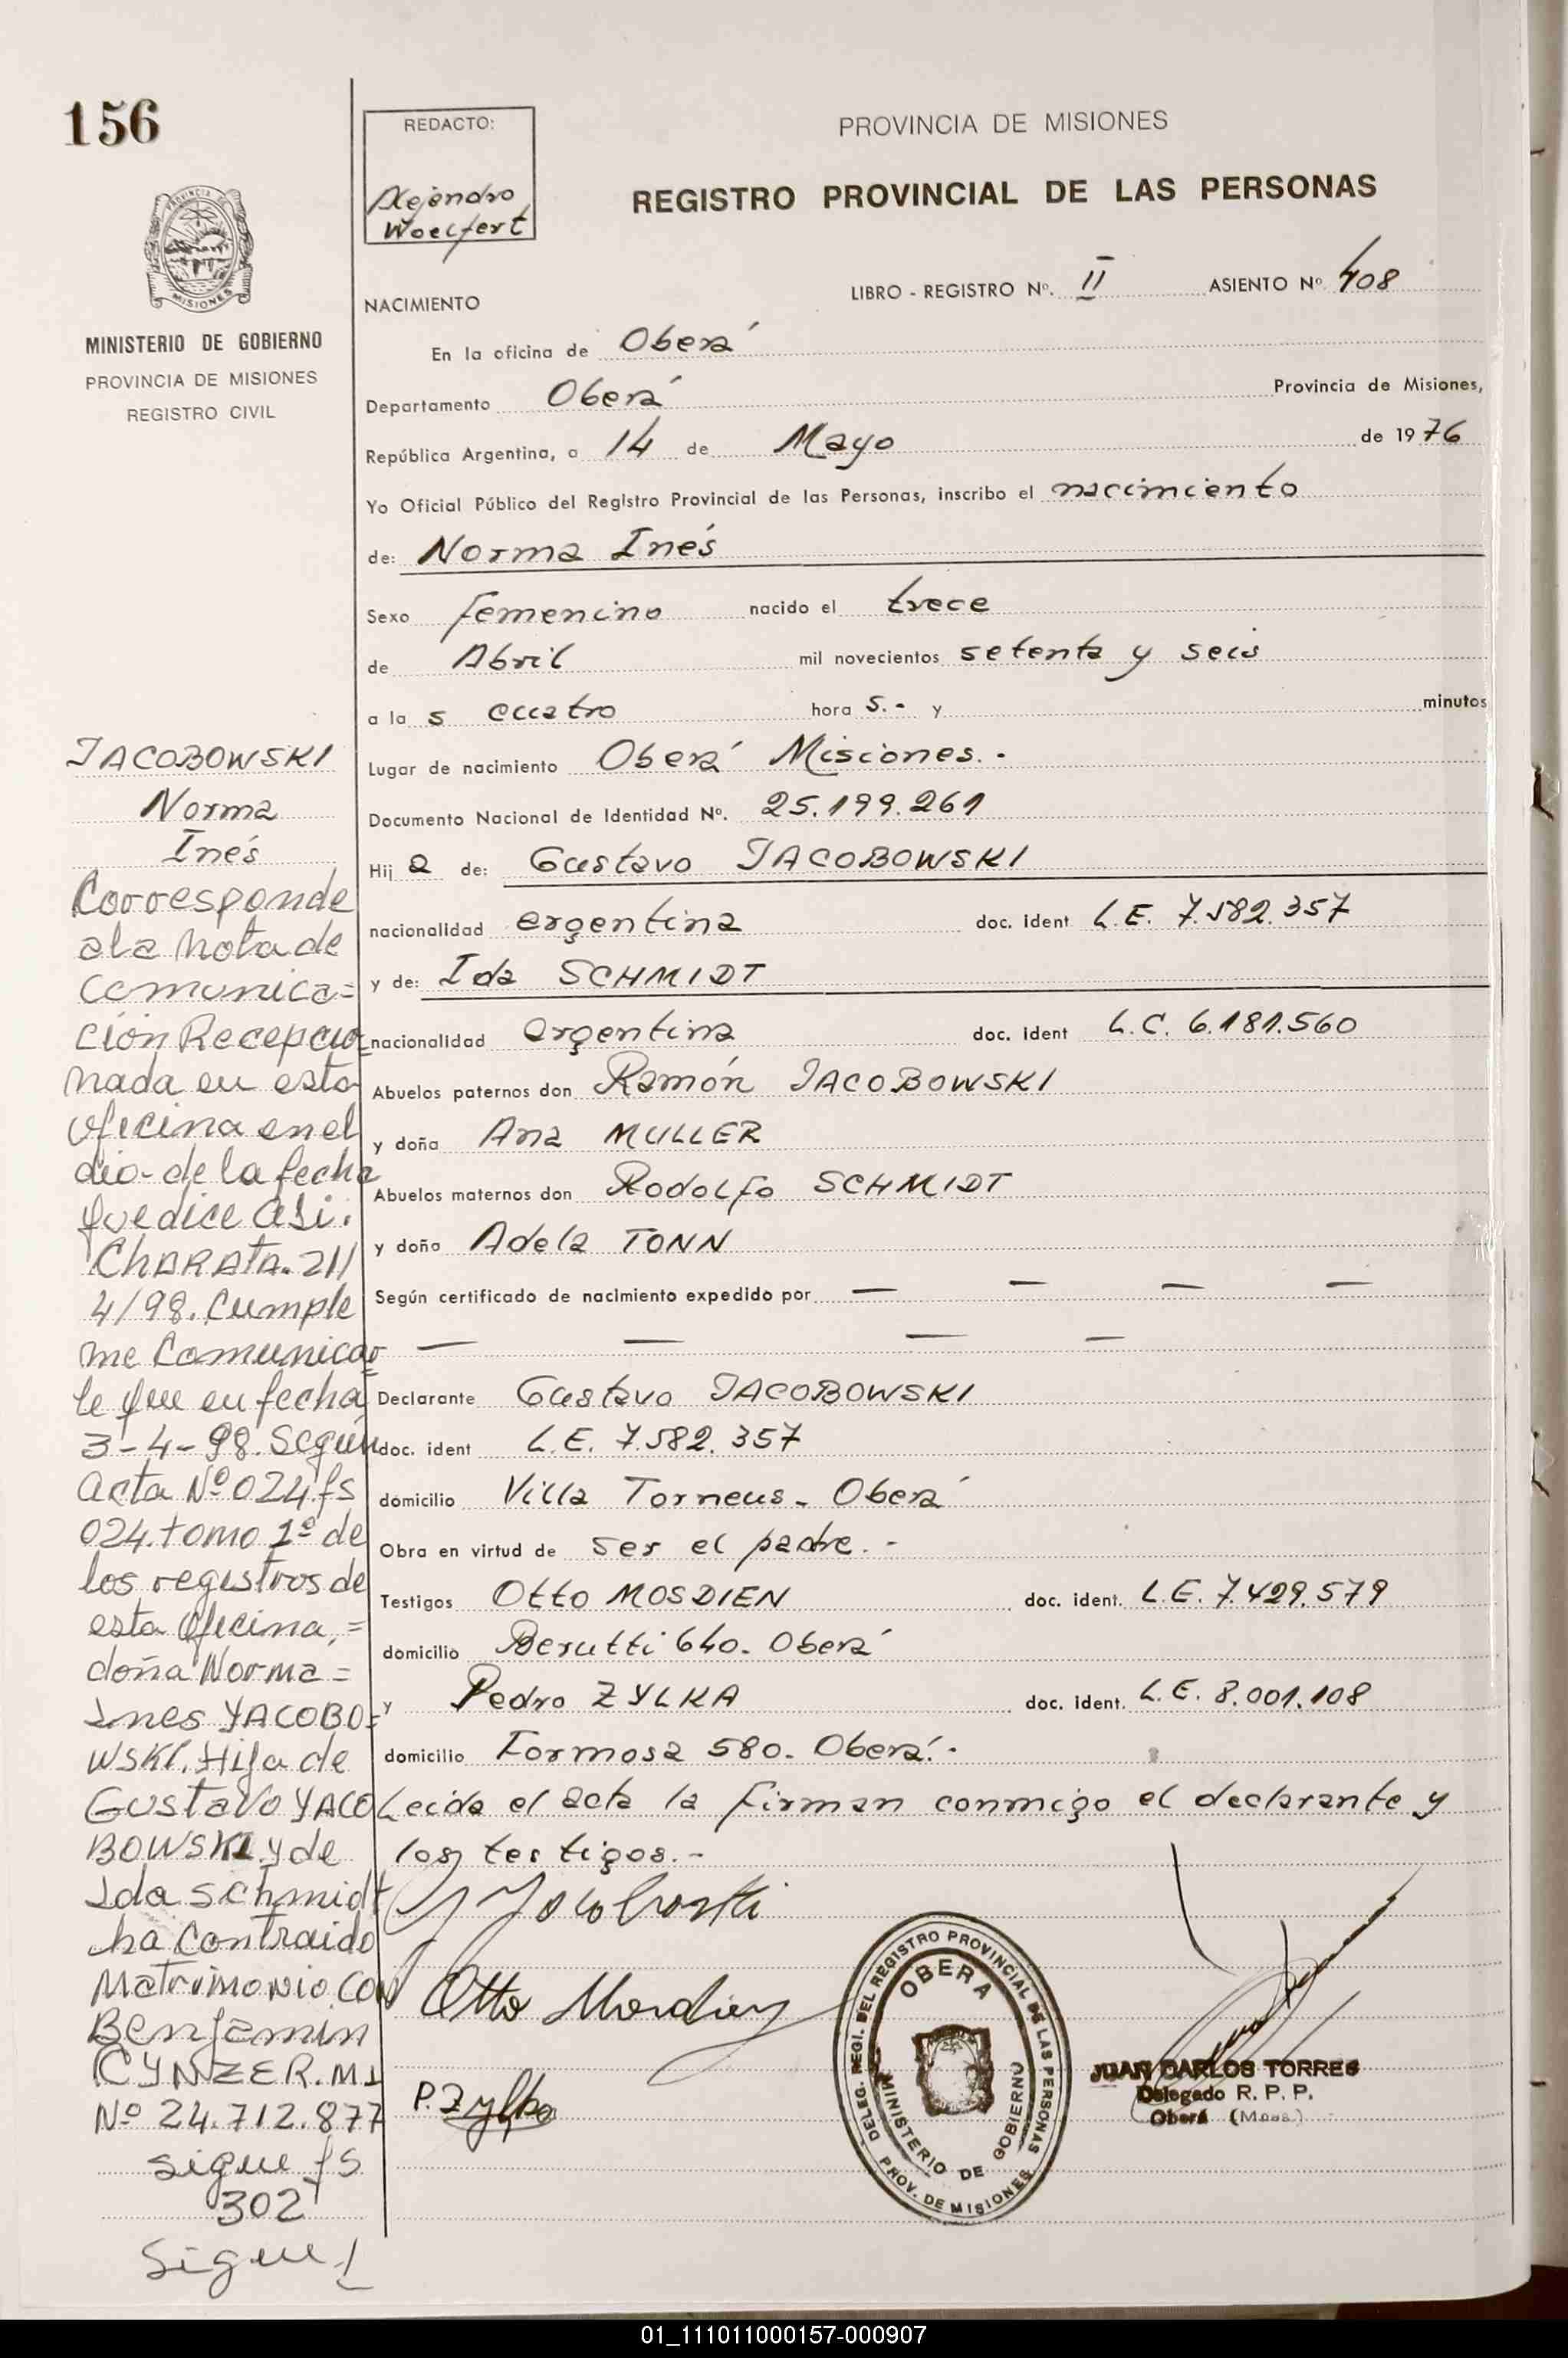 156
REDACTO:
Alejandro
Woelfert
PROVINCIA DE MISIONES
REGISTRO PROVINCIAL DE LAS PERSONAS
MISIONES
MINISTERIO DE GOBIERNO
PROVINCIA DE MISIONES
REGISTRO CIVIL
LIBRO - REGISTRO Nº. II ASIENTO Nº 408
NACIMIENTO
En la oficina de Oberá
Departamento Oberá Provincia de Misiones,
República Argentina, a 14 de Mayo de 1976
Yo Oficial Público del Registro Provincial de las Personas, inscribo el nacimiento
de: Norma Inés
Sexo femenino nacido el trece
de Abril mil novecientos setenta y seis
a la s cuatro hora s.- y minutos
Lugar de nacimiento Oberá Misiones.-
Documento Nacional de Identidad Nº. 25.199.261
Hij a de: Gustavo JACOBOWSKI
nacionalidad argentina doc. ident L.E. 7.582.357
y de: Ida SCHMIDT
nacionalidad argentina doc. ident L.C. 6.181.560
Abuelos paternos don Ramón JACOBOWSKI
y doña Ana MULLER
Abuelos maternos don Rodolfo SCHMIDT
y doña Adela TONN
Según certificado de nacimiento expedido por — — — —
— — — —
Declarante Gustavo JACOBOWSKI
doc. ident L.E. 7.582.357
domicilio Villa Torneus - Oberá
Obra en virtud de ser el padre.-
Testigos Otto MOSDIEN doc. ident. L.E. 7.429.579
domicilio Berutti 640. Oberá
y Pedro ZYLKA doc. ident. L.E. 8.001.108
domicilio Formosa 580. Oberá.-
Leida el acta la firman conmigo el declarante y
los testigos.-
JACOBOWSKI
Norma
Inés
Corresponde
a la Nota de
Comunica=
ción Recepcio=
nada en esta
oficina en el
dia de la fecha
que dice asi:
CHARATA. 21/
4/98. Cumple
me Comunicar=
le que en fecha
3-4-98. Según
acta Nº 024 fs
024. tomo 1º de
los registros de
esta Oficina,=
doña Norma=
Ines YACOBO=
WSKI. Hija de
Gustavo YACO
BOWSKI y de
Ida Schmidt
ha Contraido
Matrimonio con
Benjamin
CYNZER. MI
Nº 24.712.877
sigue fs
302
Sigue/
Otto Mosdien
P. Zylka
DELEG. REGI. DEL REGISTRO PROVINCIAL DE LAS PERSONAS
OBERA
MINISTERIO DE GOBIERNO
PROV. DE MISIONES
JUAN CARLOS TORRES
Delegado R. P. P.
Oberá (Mnes.)
01_111011000157-000907